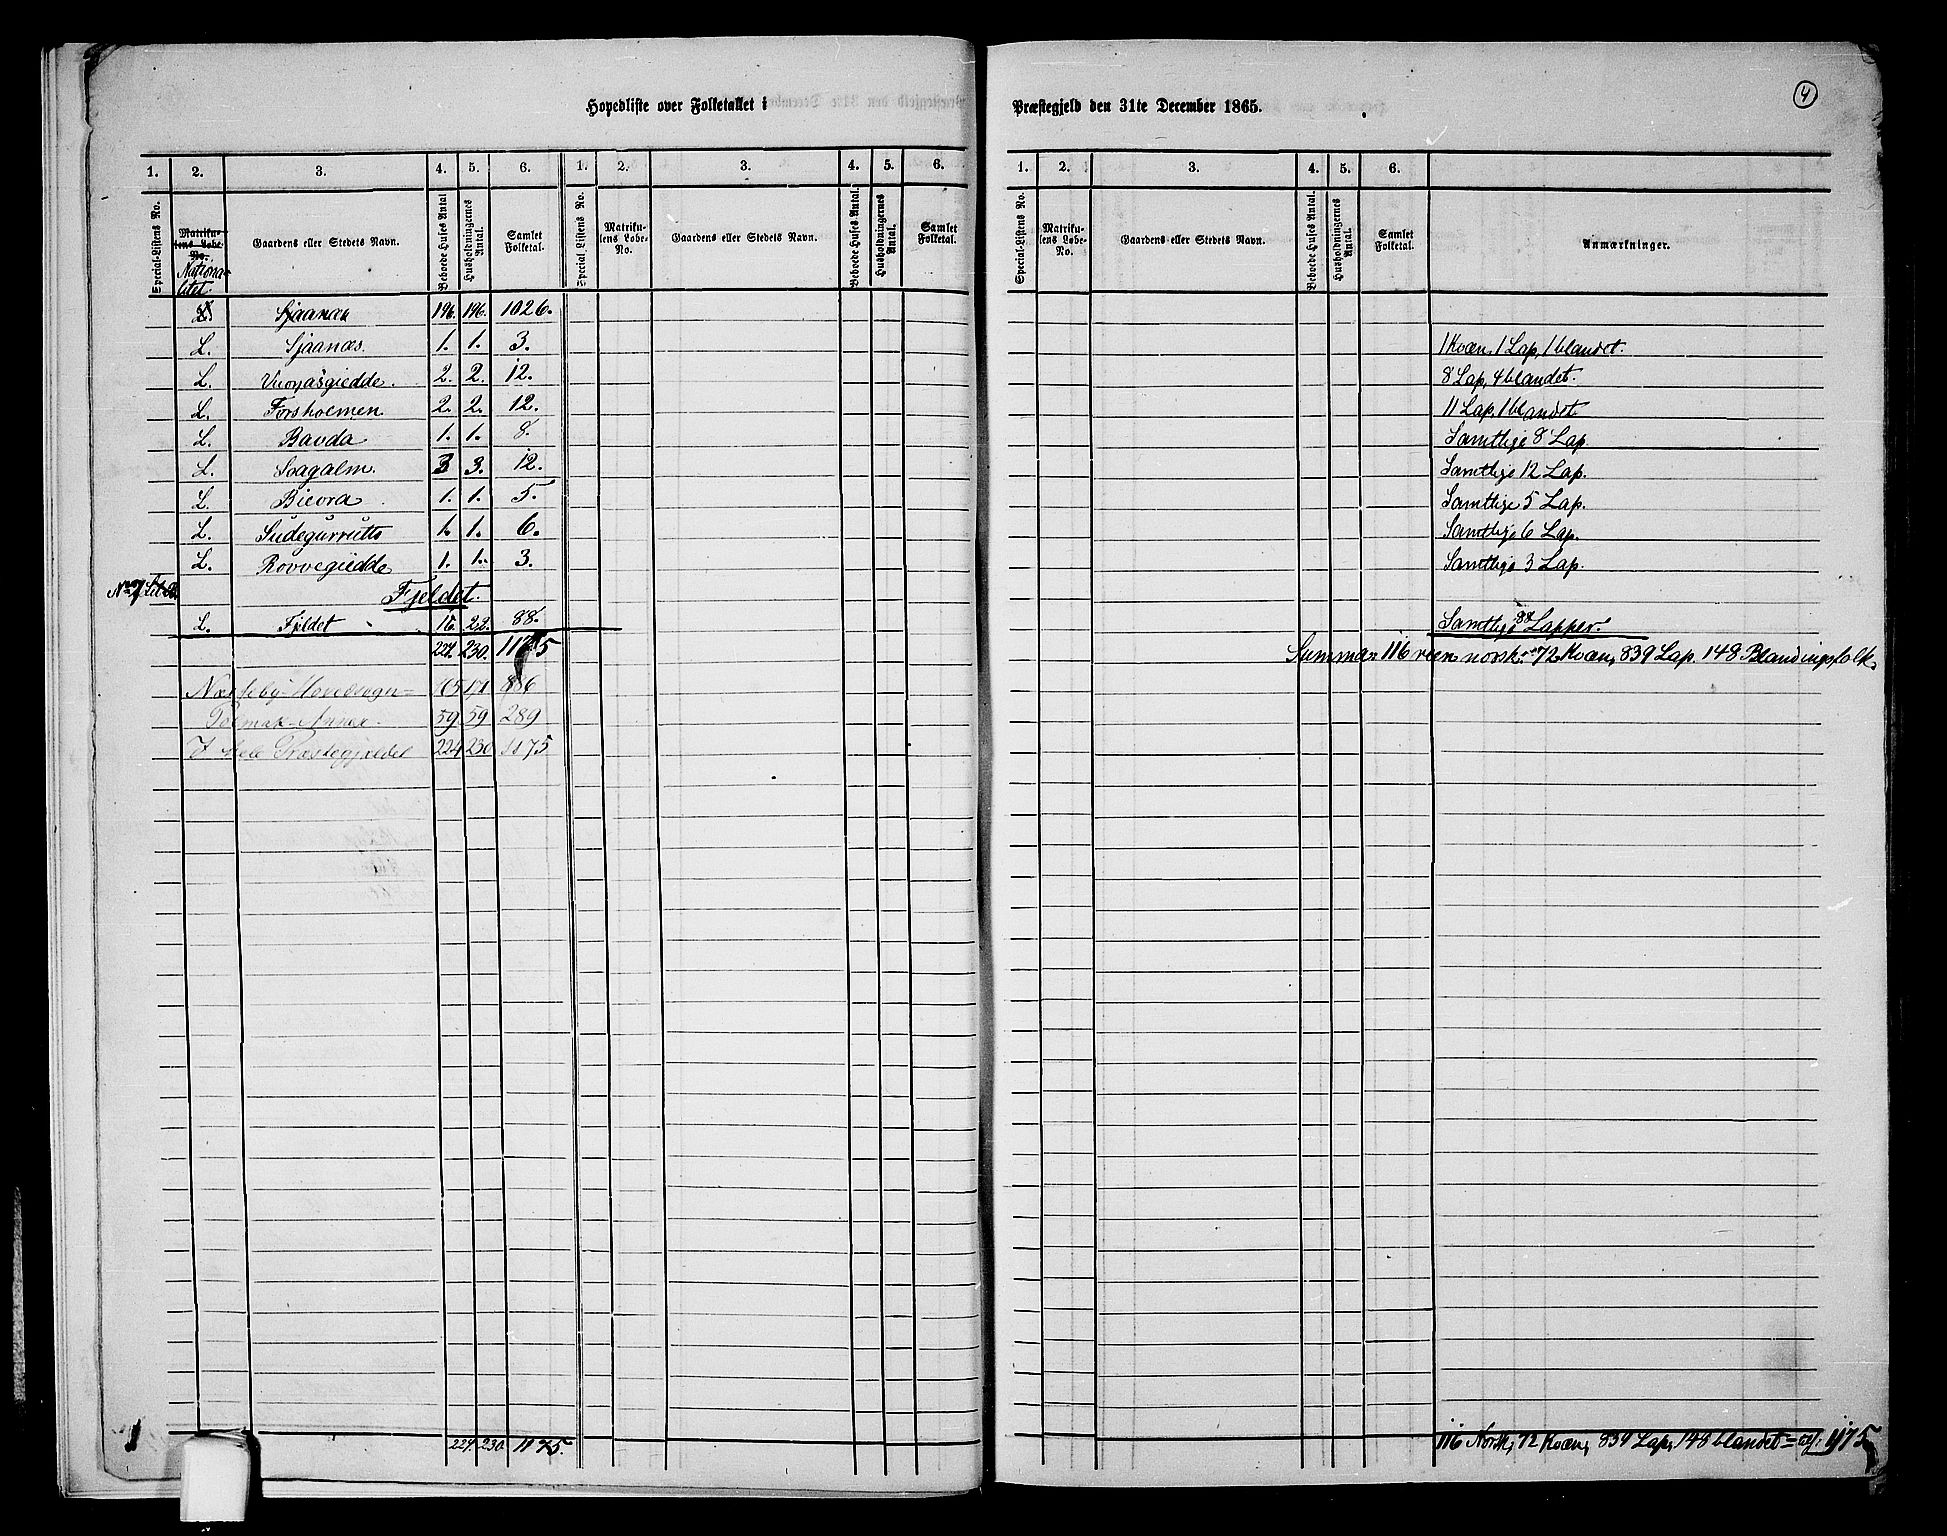 Hovedliste over Folketallet i Præstegjeld den 31te December 1865.
4
1. 2. 3. 4. 5. 6. 1. 2. 3. 4. 5. 6. 1. 2. 3. 4. 5. 6.
Special-Listens No. Matrikulens Løbe-No. Nationalitet. Gaardens eller Stedets Navn. Beboede Huses Antal Husholdningernes Antal. Samlet Folketal. Special-Listens No. Matrikulens Løbe-No. Gaardens eller Stedets Navn. Beboede Huses Antal. Husholdningernes Antal. Samlet Folketal. Special-Listens No. Matrikulens Løbe-No. Gaardens eller Stedets Navn. Beboede Huses Antal. Husholdningernes Antal. Samlet Folketal. Anmærkninger.
196. 196. 1026.
L. Sjaanæs. 1. 1. 3. 1 Kvæn, 1 Lap, 1 blandet.
L. Vuonasgiedde. 2. 2. 12. 8 Lap, 4 blandet.
L. Forsholmen 2. 2. 12. 11 Lap, 1 blandet
L. Bavda 1. 1. 8. Samtlige 8 Lap.
L. Sagalm. 3 3. 12. Samtlige 12 Lap.
L. Bicora 1. 1. 5. Samtlige 5 Lap.
L. Sudegurrutto 1. 1. 6. Samtlige 6 Lap.
L. Rovvegiedde 1. 1. 3. Samtlige 3 Lap.
Fjeldet.
L. Fjeldet 16. 22. 88. Samtlige 88 Lapper.
224. 230. 1175 Summa 116 reen norsk, 72 Kvæn, 839 Lap. 148 Blandingsfolk.
Næsseby Hovedsogn = 165 171 886
Polmak-Annex. 59 59 289
I hele Præstegjeldet 224 230 1175
224. 230. 1175. 116 Norsk, 72 Kvæn, 839 Lap, 148 blandet = 1175